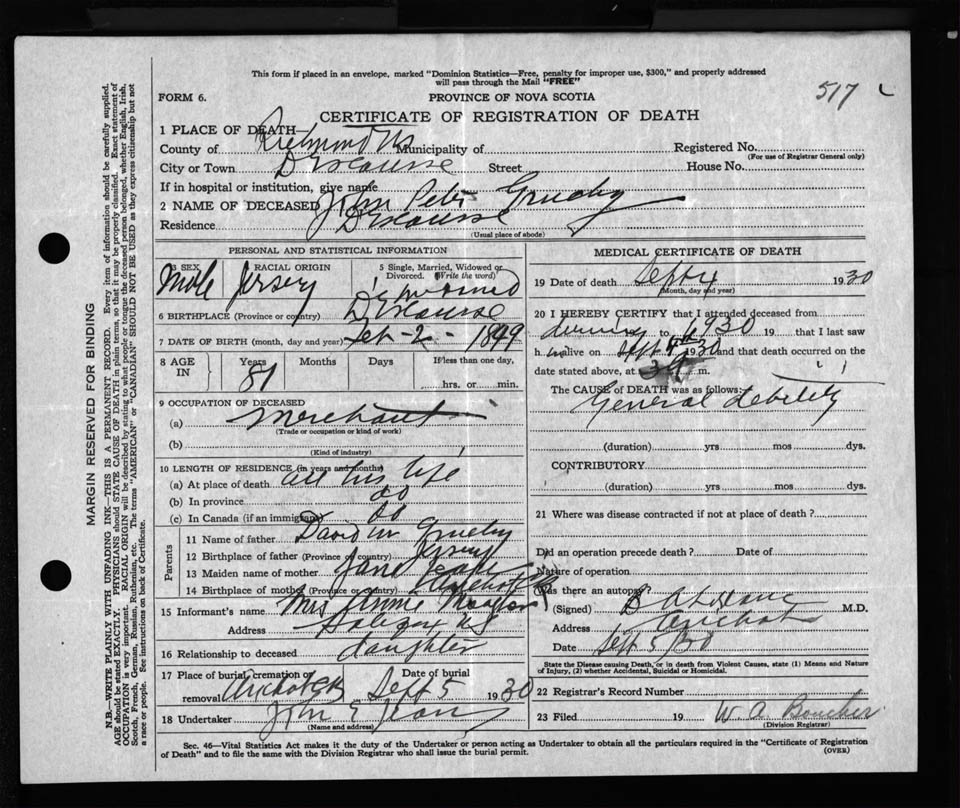 This form if placed in an envelope, marked "Dominion Statistics—Free, penalty for improper use, $300," and properly addressed
will pass through the Mail "FREE"
517
FORM 6.
PROVINCE OF NOVA SCOTIA
CERTIFICATE OF REGISTRATION OF DEATH
1 PLACE OF DEATH—
County of Richmond Municipality of Registered No.
(For use of Registrar General only)
City or Town D'Escousse Street House No.
If in hospital or institution, give name
2 NAME OF DECEASED John Peter Gruchy
Residence D'Escousse
(Usual place of abode)
PERSONAL AND STATISTICAL INFORMATION
3 SEX Male
RACIAL ORIGIN Jersey
5 Single, Married, Widowed or Divorced. (Write the word)
6 BIRTHPLACE (Province or country) D'Escousse
7 DATE OF BIRTH (month, day and year) Feb-2-
8 AGE IN Years 81 Months Days If less than one day, hrs. or min.
9 OCCUPATION OF DECEASED
(a) Merchant
(Trade or occupation or kind of work)
(b)
(Kind of industry)
10 LENGTH OF RESIDENCE (in years and months)
(a) At place of death all his life
(b) In province do
(c) In Canada (if an immigrant) do
Parents
11 Name of father David W Gruchy
12 Birthplace of father (Province or country) Jersey
13 Maiden name of mother Jane
14 Birthplace of mother (Province or country) Arichat CB
15 Informant's name Mrs Annie
Address Halifax NS
16 Relationship to deceased daughter
17 Place of burial, cremation or removal Arichat CB Date of burial Sept 5 1930
18 Undertaker John E
(Name and address)
MEDICAL CERTIFICATE OF DEATH
19 Date of death Sept 4 1930
(Month, day and year)
20 I HEREBY CERTIFY that I attended deceased from
to 1930 19 that I last saw
h im alive on Sept 1930 and that death occurred on the
date stated above, at m.
The CAUSE of DEATH was as follows:
General debility
(duration) yrs mos dys.
CONTRIBUTORY
(duration) yrs mos dys.
21 Where was disease contracted if not at place of death?
Did an operation precede death? Date of
Nature of operation
Was there an autopsy?
(Signed) M.D.
Address Arichat
Date Sept 5/30
State the Disease causing Death, or in death from Violent Causes, state (1) Means and Nature
of Injury, (2) whether Accidental, Suicidal or Homicidal.
22 Registrar's Record Number
23 Filed 19 W. A. Boucher
(Division Registrar)
Sec. 46—Vital Statistics Act makes it the duty of the Undertaker or person acting as Undertaker to obtain all the particulars required in the "Certificate of Registration
of Death" and to file the same with the Division Registrar who shall issue the burial permit.
(OVER)
MARGIN RESERVED FOR BINDING
N.B.—WRITE PLAINLY WITH UNFADING INK—THIS IS A PERMANENT RECORD. Every item of information should be carefully supplied.
AGE should be stated EXACTLY. PHYSICIANS should STATE CAUSE OF DEATH in plain terms, so that it may be properly classified. Exact statement of
OCCUPATION is very important. RACIAL ORIGIN will be described by stating to what people or tongue the deceased person belonged, whether English, Irish,
Scotch, French, German, Russian, Ruthenian, etc. The terms "AMERICAN" or "CANADIAN" SHOULD NOT BE USED as they express citizenship but not
a race or people. See instructions on back of Certificate.